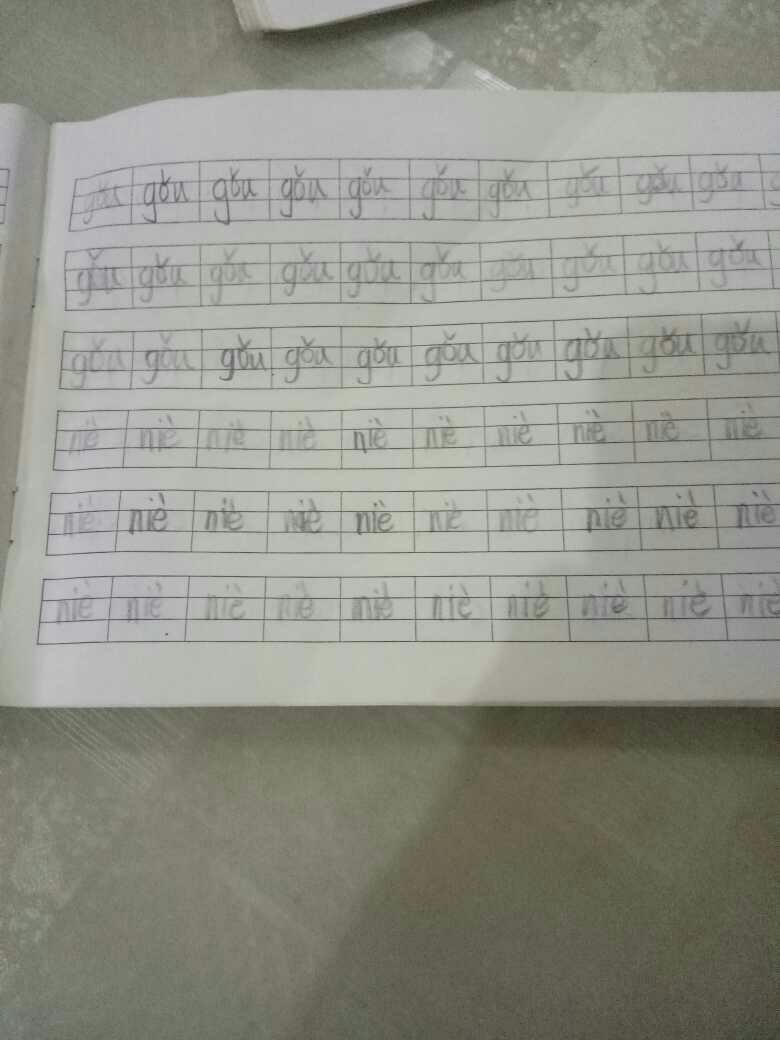 gǒu gǒu gǒu gǒu gǒu gǒu gǒu gǒu gǒu gǒu
gǒu gǒu gǒu gǒu gǒu gǒu gǒu gǒu gǒu gǒu
gǒu gǒu gǒu gǒu gǒu gǒu gǒu gǒu gǒu gǒu
niè niè niè niè niè niè niè niè niè niè
niè niè niè niè niè niè niè niè niè niè
niè niè niè niè niè niè niè niè niè niè